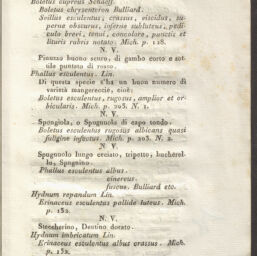 Boletus cupreus Schaeff.
Boletus chrysenteron Bulliard.
Suillus esculentus; crassus, viscidus, su-
perna obscurus, inferne subluteus; pedi-
culo brevi, tenui, concolore, punctis et
lituris rubris notato. Mich. p. 128.
N. V.
Pinuzzo buono scuro, di gambo corto e sot-
tile puntato di rosso.
Phallus esculentus. Lin.
Di questa specie s'ha un buon numero di
varietà mangereccie, cioè:
Boletus esculentus, rugosus, amplior et or-
bicularis. Mich. p. 203. N. 1.
N. V.
Spongiola, o Spugnuola di capo tondo.
Boletus esculentus rugosus albicans quasi
fuligine infectus. Mich. p. 203. N. 2.
N. V.
Spugnuolo lungo cresciato, tripetto, bucherel-
lo, Spugnino.
Phallus esculentus albus.
cinereus.
fuscus. Bulliard etc.
Hydnum repandum Lin.
Erinaceus esculentus pallide luteus. Mich.
p. 132.
N. V.
Steccherino, Dentino dorato.
Hydnum imbricatum Lin.
Erinaceus esculentus albus crassus. Mich.
p. 132.